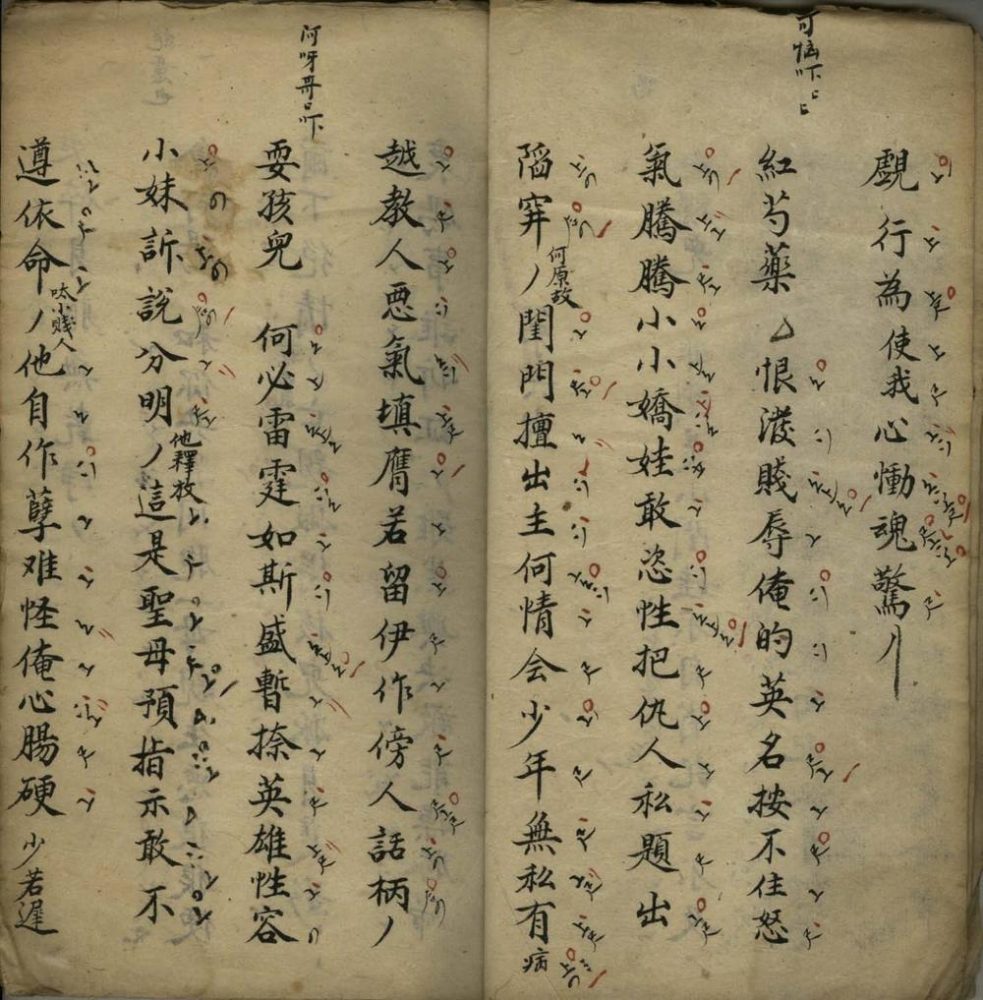 覷行為使我心慟魂驚
可惱吓〻
紅芍藥 恨潑賤辱俺的英名按不住怒
氣騰騰小小嬌娃敢恣性把仇人私題出
陷穽 何原故 閨門擅出主何情会少年無私有病
越教人悪氣填膺若留伊作傍人話柄
阿呀哥〻吓
耍孩兒 何必雷霆如斯盛暫捺英雄性容
小妹訴說分明 他釋放 這是聖母預指示敢不
遵依命 呔小賤人 他自作孽难怪俺心腸硬 少若遲